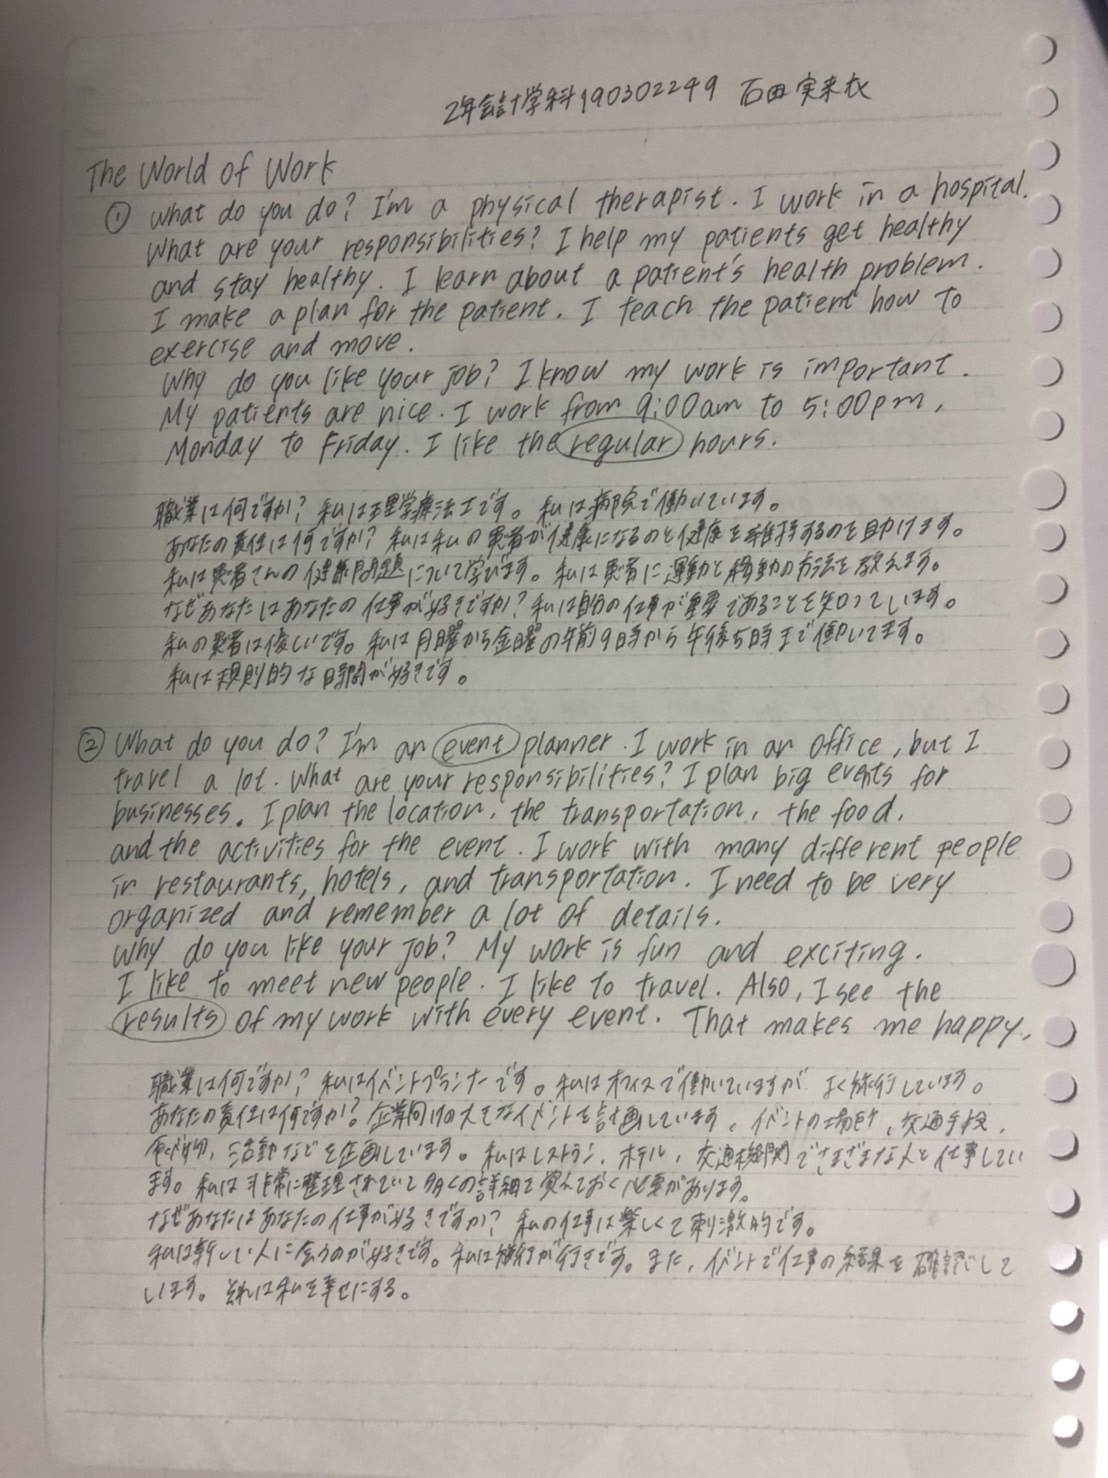 2年会計学科190302249 石田実来衣
The World of Work
① What do you do? I'm a physical therapist. I work in a hospital.
What are your responsibilities? I help my patients get healthy
and stay healthy. I learn about a patient's health problem.
I make a plan for the patient. I teach the patient how to
exercise and move.
Why do you like your job? I know my work is important.
My patients are nice. I work from 9:00am to 5:00pm,
Monday to Friday. I like the regular hours.
職業は何ですか? 私は理学療法士です。私は病院で働いています。
あなたの責任は何ですか? 私は私の患者が健康になるのと健康を維持するのを助けます。
私は患者さんの健康問題について学びます。私は患者に運動と移動の方法を教えます。
なぜあなたはあなたの仕事が好きですか? 私は自分の仕事が重要であることを知っています。
私の患者は優しいです。私は月曜から金曜の午前9時から午後5時まで働いてます。
私は規則的な時間が好きです。
② What do you do? I'm an event planner. I work in an office, but I
travel a lot. What are your responsibilities? I plan big events for
businesses. I plan the location, the transportation, the food,
and the activities for the event. I work with many different people
in restaurants, hotels, and transportation. I need to be very
organized and remember a lot of details.
Why do you like your job? My work is fun and exciting.
I like to meet new people. I like to travel. Also, I see the
results of my work with every event. That makes me happy.
職業は何ですか? 私はイベントプランナーです。私はオフィスで働いていますが よく旅行しています。
あなたの責任は何ですか? 企業向けの大きなイベントを計画しています。イベントの場所、交通手段、
食べ物、活動などを企画しています。私はレストラン、ホテル、交通機関でさまざまな人と仕事してい
ます。私は非常に整理されていて多くの詳細を覚えておく必要があります。
なぜあなたはあなたの仕事が好きですか? 私の仕事は楽しくて刺激的です。
私は新しい人に会うのが好きです。私は旅行が好きです。また、イベントで仕事の結果を確認して
います。それは私を幸せにする。